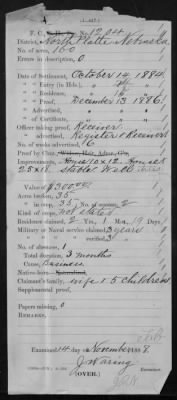 (4-447.)
F. C., No. 1204
District, North Platte Nebraska
No. of acres, 160
Errors in description, 0
Date of Settlement, October 14, 1884.
" Entry (in Hdq.),
" " Notice,
" Proof, December 13, 1886.
" " Advertised,
" " Certificate,
Officer taking proof, Receiver
" " Advertised, Register & Receiver
No. of weeks advertised, 6
Proof by Claimant
Improvements, House 10 x 12.
25 x 18. stable Well
Value of $300.00
Acres broken, 35
" in crop, 35. No. of seasons, 2
Kind of crop, not stated
Residence claimed, 2 Yrs., 1 Mo., 19 Days.
Military or Naval service claimed, 3 years
" " " verified, 3
No. of absences, 1
Total duration, 3 months
Cause, Business
Native-born
Claimant's family, wife & 5 children
Supplemental proof,
Papers missing, 0
REMARKS,
Examined 14 day of November 1888.
J. Waring
(OVER.)